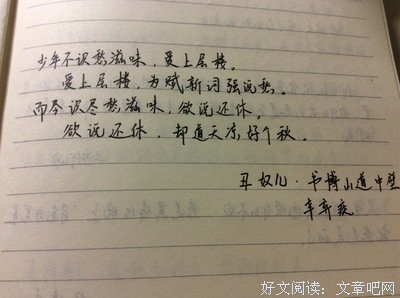 少年不识愁滋味，爱上层楼。
爱上层楼，为赋新词强说愁。
而今识尽愁滋味，欲说还休。
欲说还休，却道天凉好个秋。
丑奴儿·书博山道中壁
辛弃疾
好文阅读：文章吧网